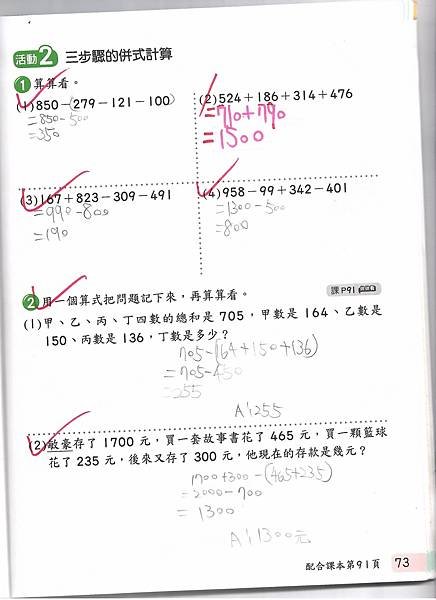 活動2 三步驟的併式計算
1 算算看。
(1)850－279－121－100
=850-500
=350
(2)524＋186＋314＋476
=710+790
=1500
(3)167＋823－309－491
=990-800
=190
(4)958－99＋342－401
=1300-500
=800
2 用一個算式把問題記下來，再算算看。
課P91
(1)甲、乙、丙、丁四數的總和是 705，甲數是 164、乙數是
150、丙數是 136，丁數是多少？
705-(164+150+136)
=705-450
=255
A:255
(2)敏豪存了 1700 元，買一套故事書花了 465 元，買一顆籃球
花了 235 元，後來又存了 300 元，他現在的存款是幾元？
1700+300-(465+235)
=2000-700
=1300
A:1300元
配合課本第91頁 73